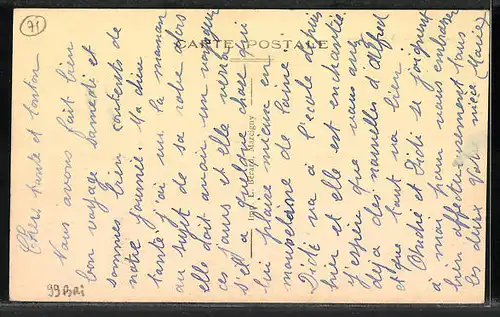 71
CARTE POSTALE
Chers tante et tonton
Nous avons fait bien
bon voyage samedi et
sommes bien contents de
notre journée. Ma chère
tante j'ai vu la maman
au sujet de sa robe alors
elle doit avoir un voyageur
ces jours et elle verra
s'il a quelque chose qui
lui plaise mieux en
mousseline de laine
Didi va à l'école depuis
hier et elle est enchantée
J'espère que vous avez
déjà des nouvelles d'Alfred
et que tout va bien
et Didi se joignent
à moi pour vous embrasser
bien affectueusement tous
les deux Votre nièce (Marie)
99 BRI